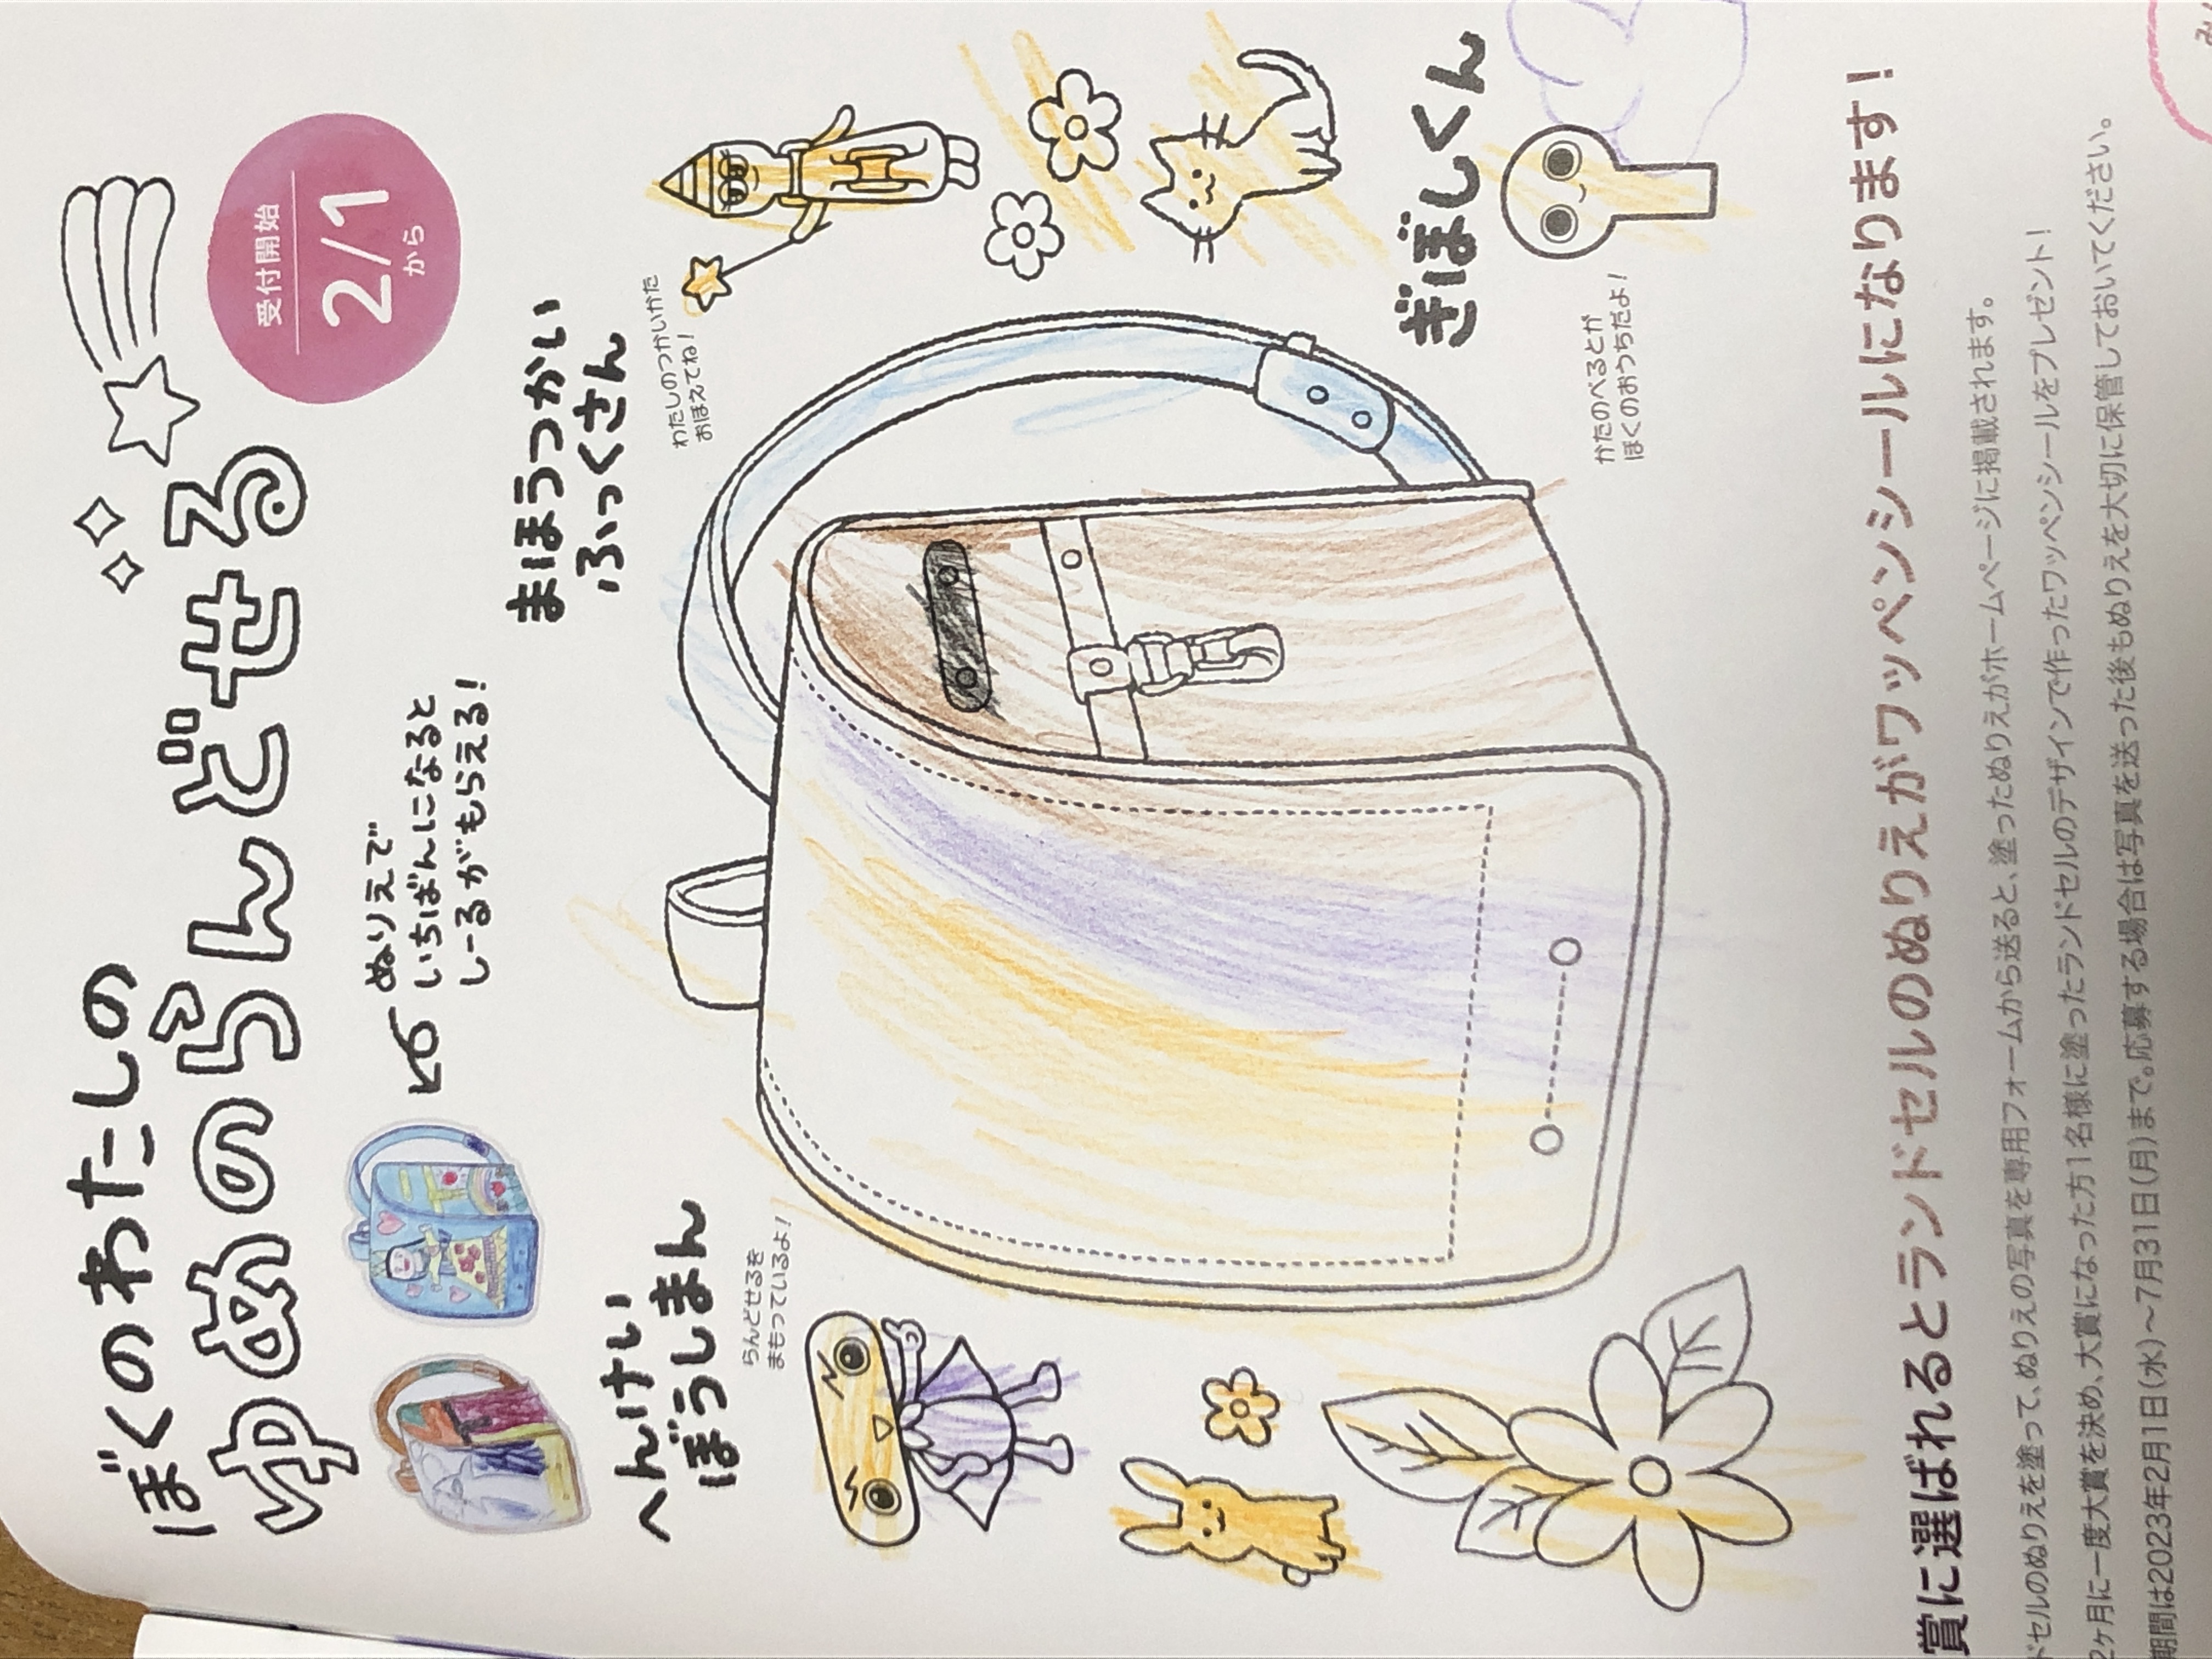 ぼくのわたしの
ゆめのらんどせる
受付開始
2/1
から
ぬりえで
いちばんになると
しーるがもらえる!
まほうつかい
ふっくさん
わたしのつかいかた
おぼえてね!
へんけい
ぼうしまん
らんどせるを
まもっているよ!
ぎぼしくん
かたのべるとが
ぼくのおうちだよ!
賞に選ばれるとランドセルのぬりえがワッペンシールになります!
ドセルのぬりえを塗って、ぬりえの写真を専用フォームから送ると、塗ったぬりえがホームページに掲載されます。
2ヶ月に一度大賞を決め、大賞になった方1名様に塗ったランドセルのデザインで作ったワッペンシールをプレゼント!
期間は2023年2月1日(水)〜7月31日(月)まで。応募する場合は写真を送った後もぬりえを大切に保管しておいてください。